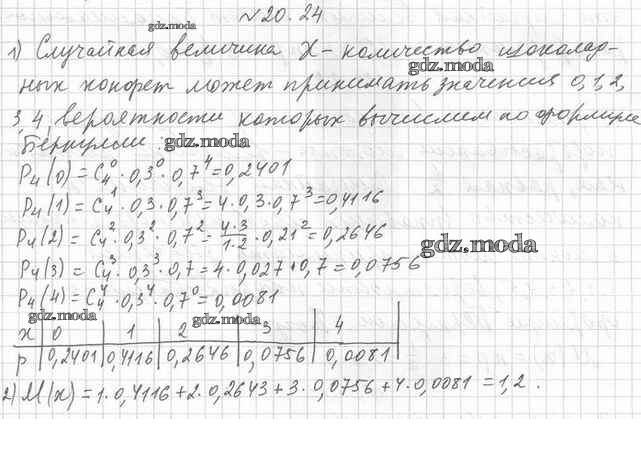 №20.24
gdz.moda
1) Случайная величина X – количество шоколад-
gdz.moda
ных конфет может принимать значения 0, 1, 2,
3, 4, вероятности которых вычислим по формуле
Бернулли:
gdz.moda
P₄(0) = C₄⁰ · 0,3⁰ · 0,7⁴ = 0,2401
P₄(1) = C₄¹ · 0,3 · 0,7³ = 4 · 0,3 · 0,7³ = 0,4116
P₄(2) = C₄² · 0,3² · 0,7² = 4·3/1·2 · 0,21² = 0,2646
gdz.moda
P₄(3) = C₄³ · 0,3³ · 0,7 = 4 · 0,027 · 0,7 = 0,0756
P₄(4) = C₄⁴ · 0,3⁴ · 0,7⁰ = 0,0081
gdz.moda gdz.moda
x 0 1 2 3 4
p 0,2401 0,4116 0,2646 0,0756 0,0081
2) M(x) = 1 · 0,4116 + 2 · 0,2643 + 3 · 0,0756 + 4 · 0,0081 = 1,2.